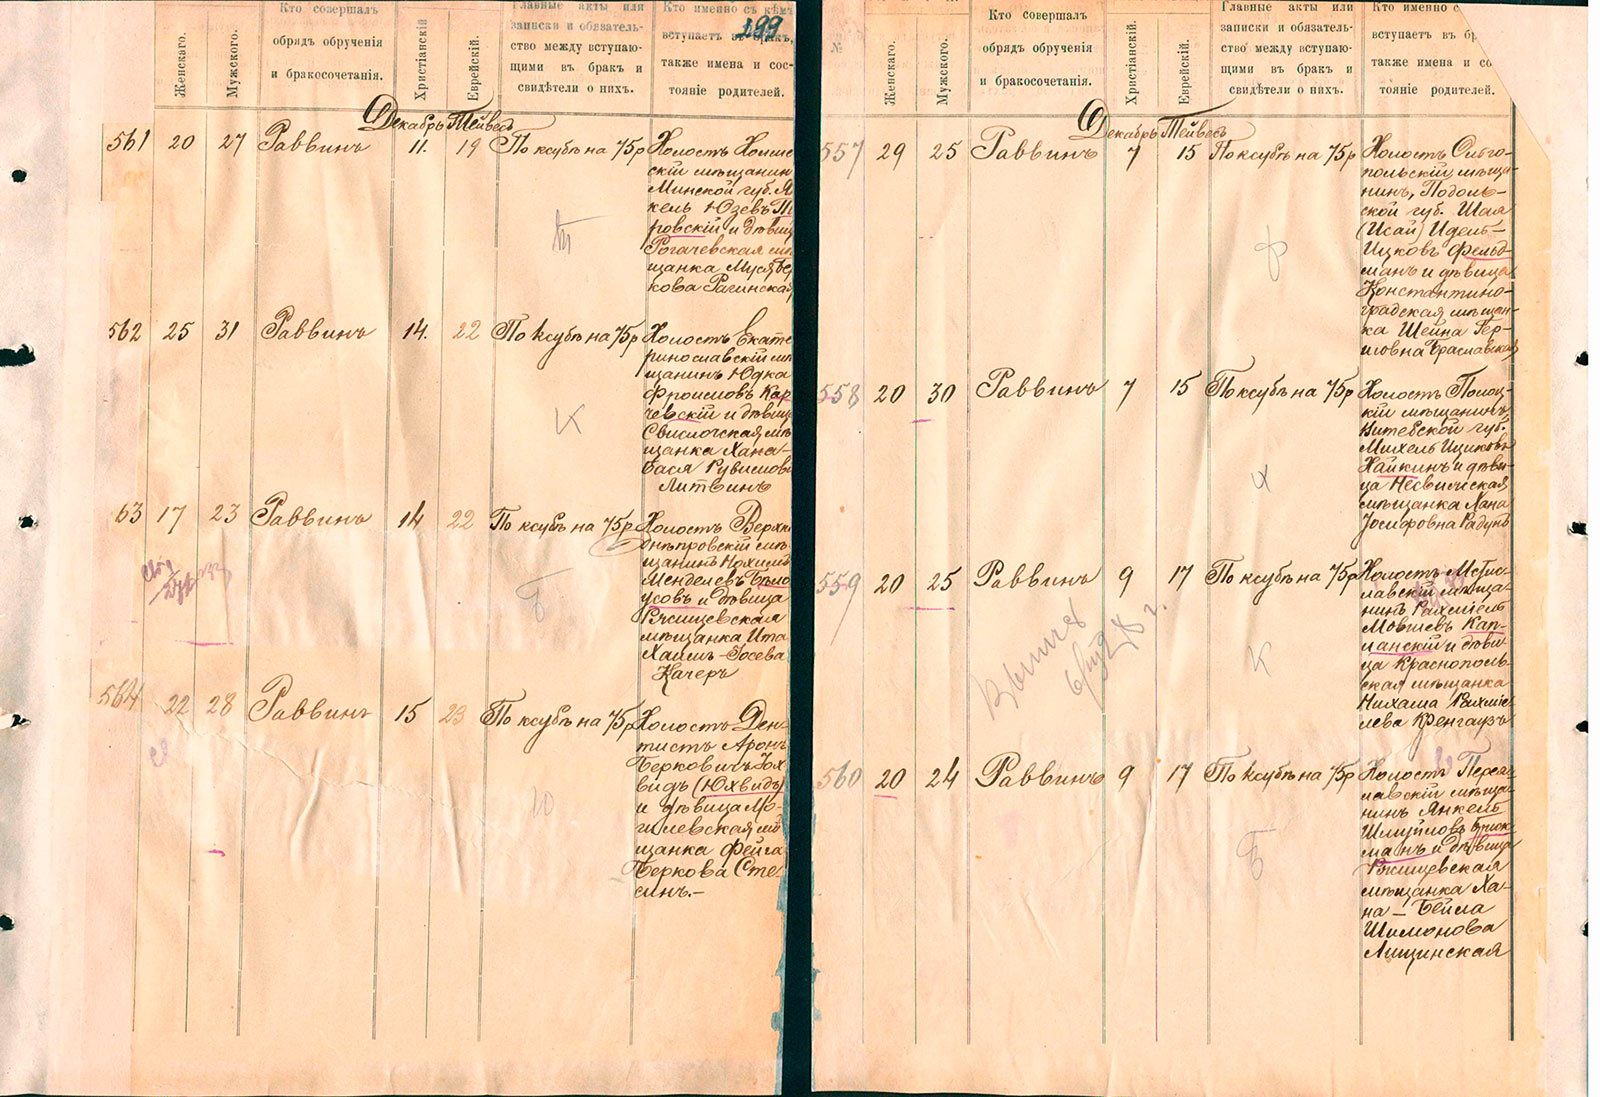 Женскаго.
Мужского.
Кто совершалъ
обрядъ обрученія
и бракосочетанія.
Христіанскій
Еврейскій.
Главные акты или
записки и обязатель-
ство между вступаю-
щими въ бракъ и
свидѣтели о нихъ.
Кто именно съ кѣмъ
вступаетъ въ бракъ,
также имена и сос-
тояніе родителей.
299
Декабрь Тейвесъ
561 20 27 Раввинъ 11. 19 По ксубѣ на 75р
Холостъ
скій мѣщанин
Минской губ. Я
кель Юзевъ
ровскій и дѣвиц
Рогачевская мѣ
щанка Муся Бер
кова Рагинская
Т
562 25 31 Раввинъ 14. 22 По ксубѣ на 75р
Холостъ Екате
ринославскій мѣ
щанинъ Юдка
Фроимовъ Кар
чевскій и дѣвиц
Свислочская мѣ
щанка Хана-
Бася Рувимов
Литвинъ
К
63 17 23 Раввинъ 14 22 По ксубѣ на 75р
Холостъ Верхне
днѣпровскій мѣ
щанинъ Нохимъ
Менделевъ Бѣло
усовъ и дѣвица
Ржищевская
мѣщанка Ита
Хаимъ-Іосева
Качеръ
Б
564 22 28 Раввинъ 15 23 По ксубѣ на 75р
Холостъ Ден
тистъ Аронъ
Берковичъ Юх
видъ (Юхвидъ)
и дѣвица Мо-
гилевская мѣ
щанка Фейга
Беркова Сте
синъ.-
Ю
№
Женскаго.
Мужского.
Кто совершалъ
обрядъ обрученія
и бракосочетанія.
Христіанскій
Еврейскій.
Главные акты или
записки и обязатель-
ство между вступаю-
щими въ бракъ и
свидѣтели о нихъ.
Кто именно с
вступаетъ въ бр
также имена и со
тояніе родителей.
Декабрь Тейвесъ
557 29 25 Раввинъ 7 15 По ксубѣ на 75р
Холостъ Ольго-
польскій мѣща-
нинъ, Подоль-
ской губ. Шая
(Исай) Идель-
Ицковъ Фельд-
манъ и дѣвица
Константино-
градская мѣщан-
ка Шейна Гер-
шовна Браславская
Ф
558 20 30 Раввинъ 7 15 По ксубѣ на 75р
Холостъ Полоц-
кій мѣщанинъ,
Витебской губ.
Михель Ициковъ
Хайкинъ и дѣви-
ца Несвижская
мѣщанка Хана
Іосифовна Радунъ
Х
559 20 25 Раввинъ 9 17 По ксубѣ на 75р
Холостъ Мстис-
лавскій мѣща-
нинъ Рахміель
Мовшевъ Кап-
ланскій и дѣви-
ца Краснополь-
ская мѣщанка
Нихама Рахміе-
лева Кренгаузъ
К
560 20 24 Раввинъ 9 17 По ксубѣ на 75р
Холостъ Переяс
лавскій мѣща-
нинъ Янкель
Шмуйловъ Брюк
манъ и дѣвица
Ржищевская
мѣщанка Ха-
на-Бейла
Шимонова
Лищинская
Б